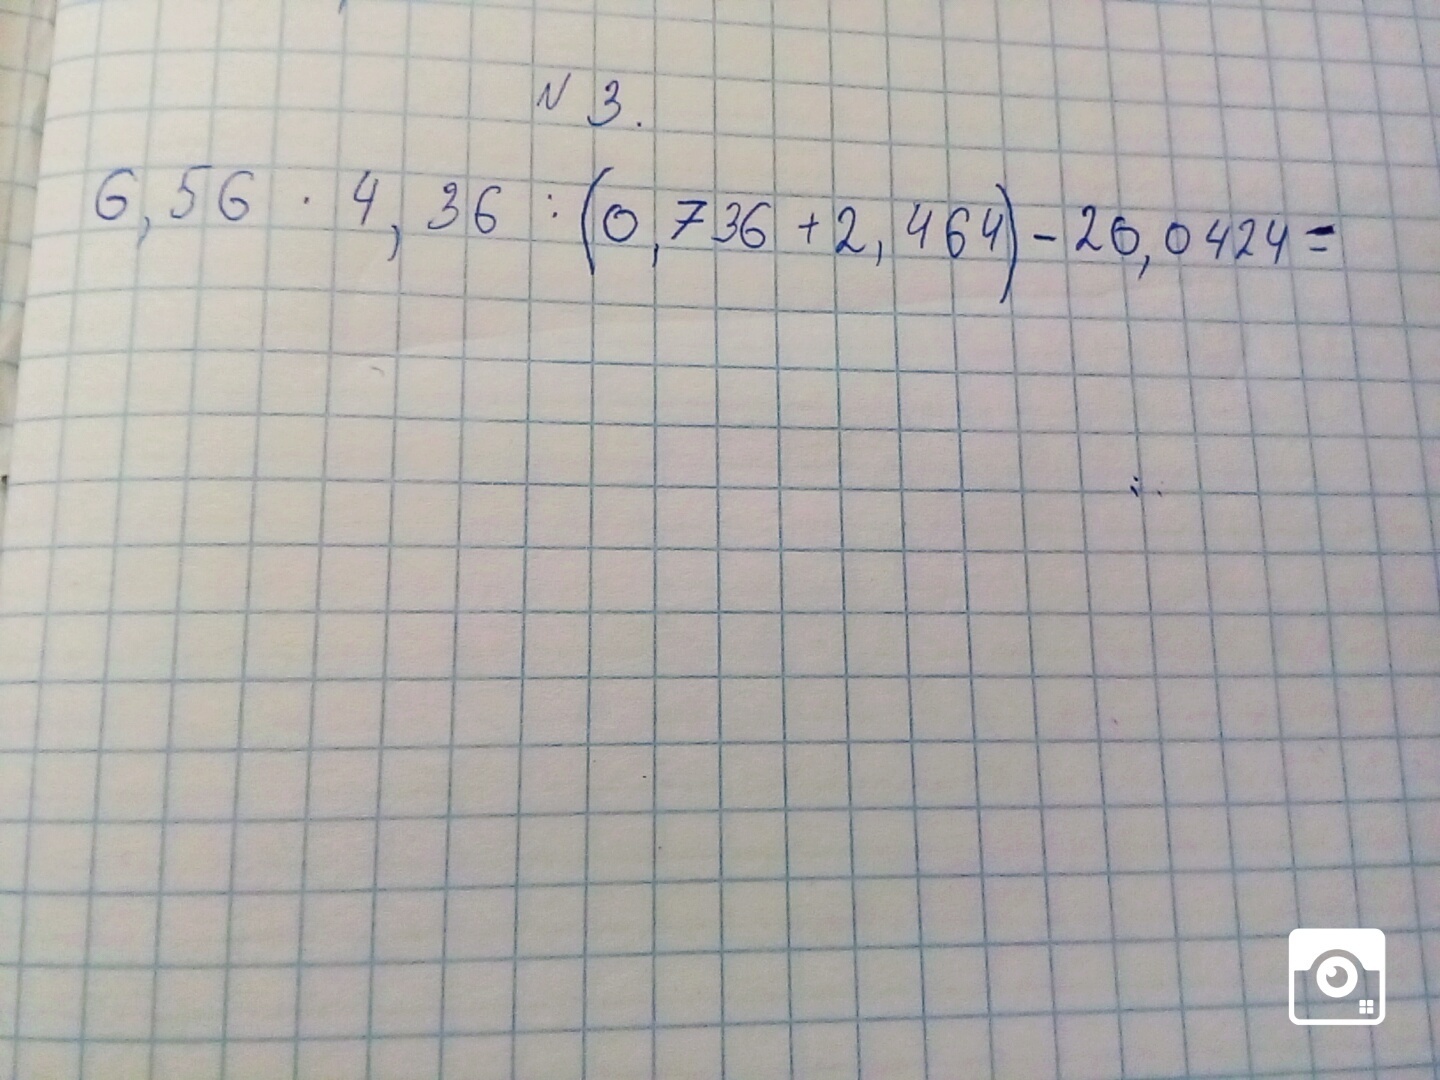 N 3.
6,56 · 4,36 : (0,736 + 2,464) - 20,0424 =